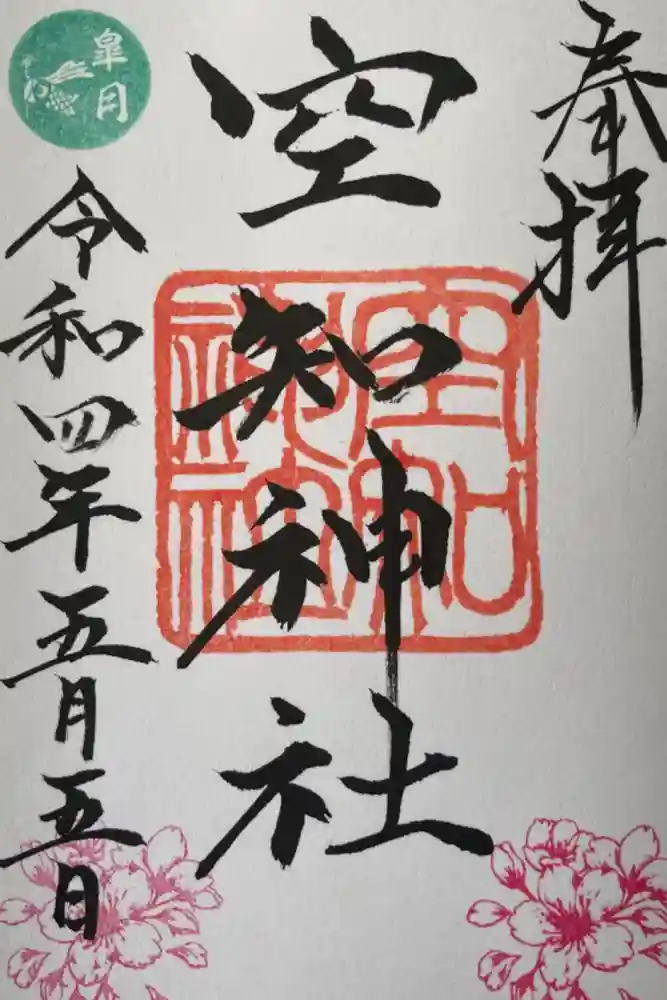 奉拝
空知神社
空知神社
令和四年五月五日
皐月